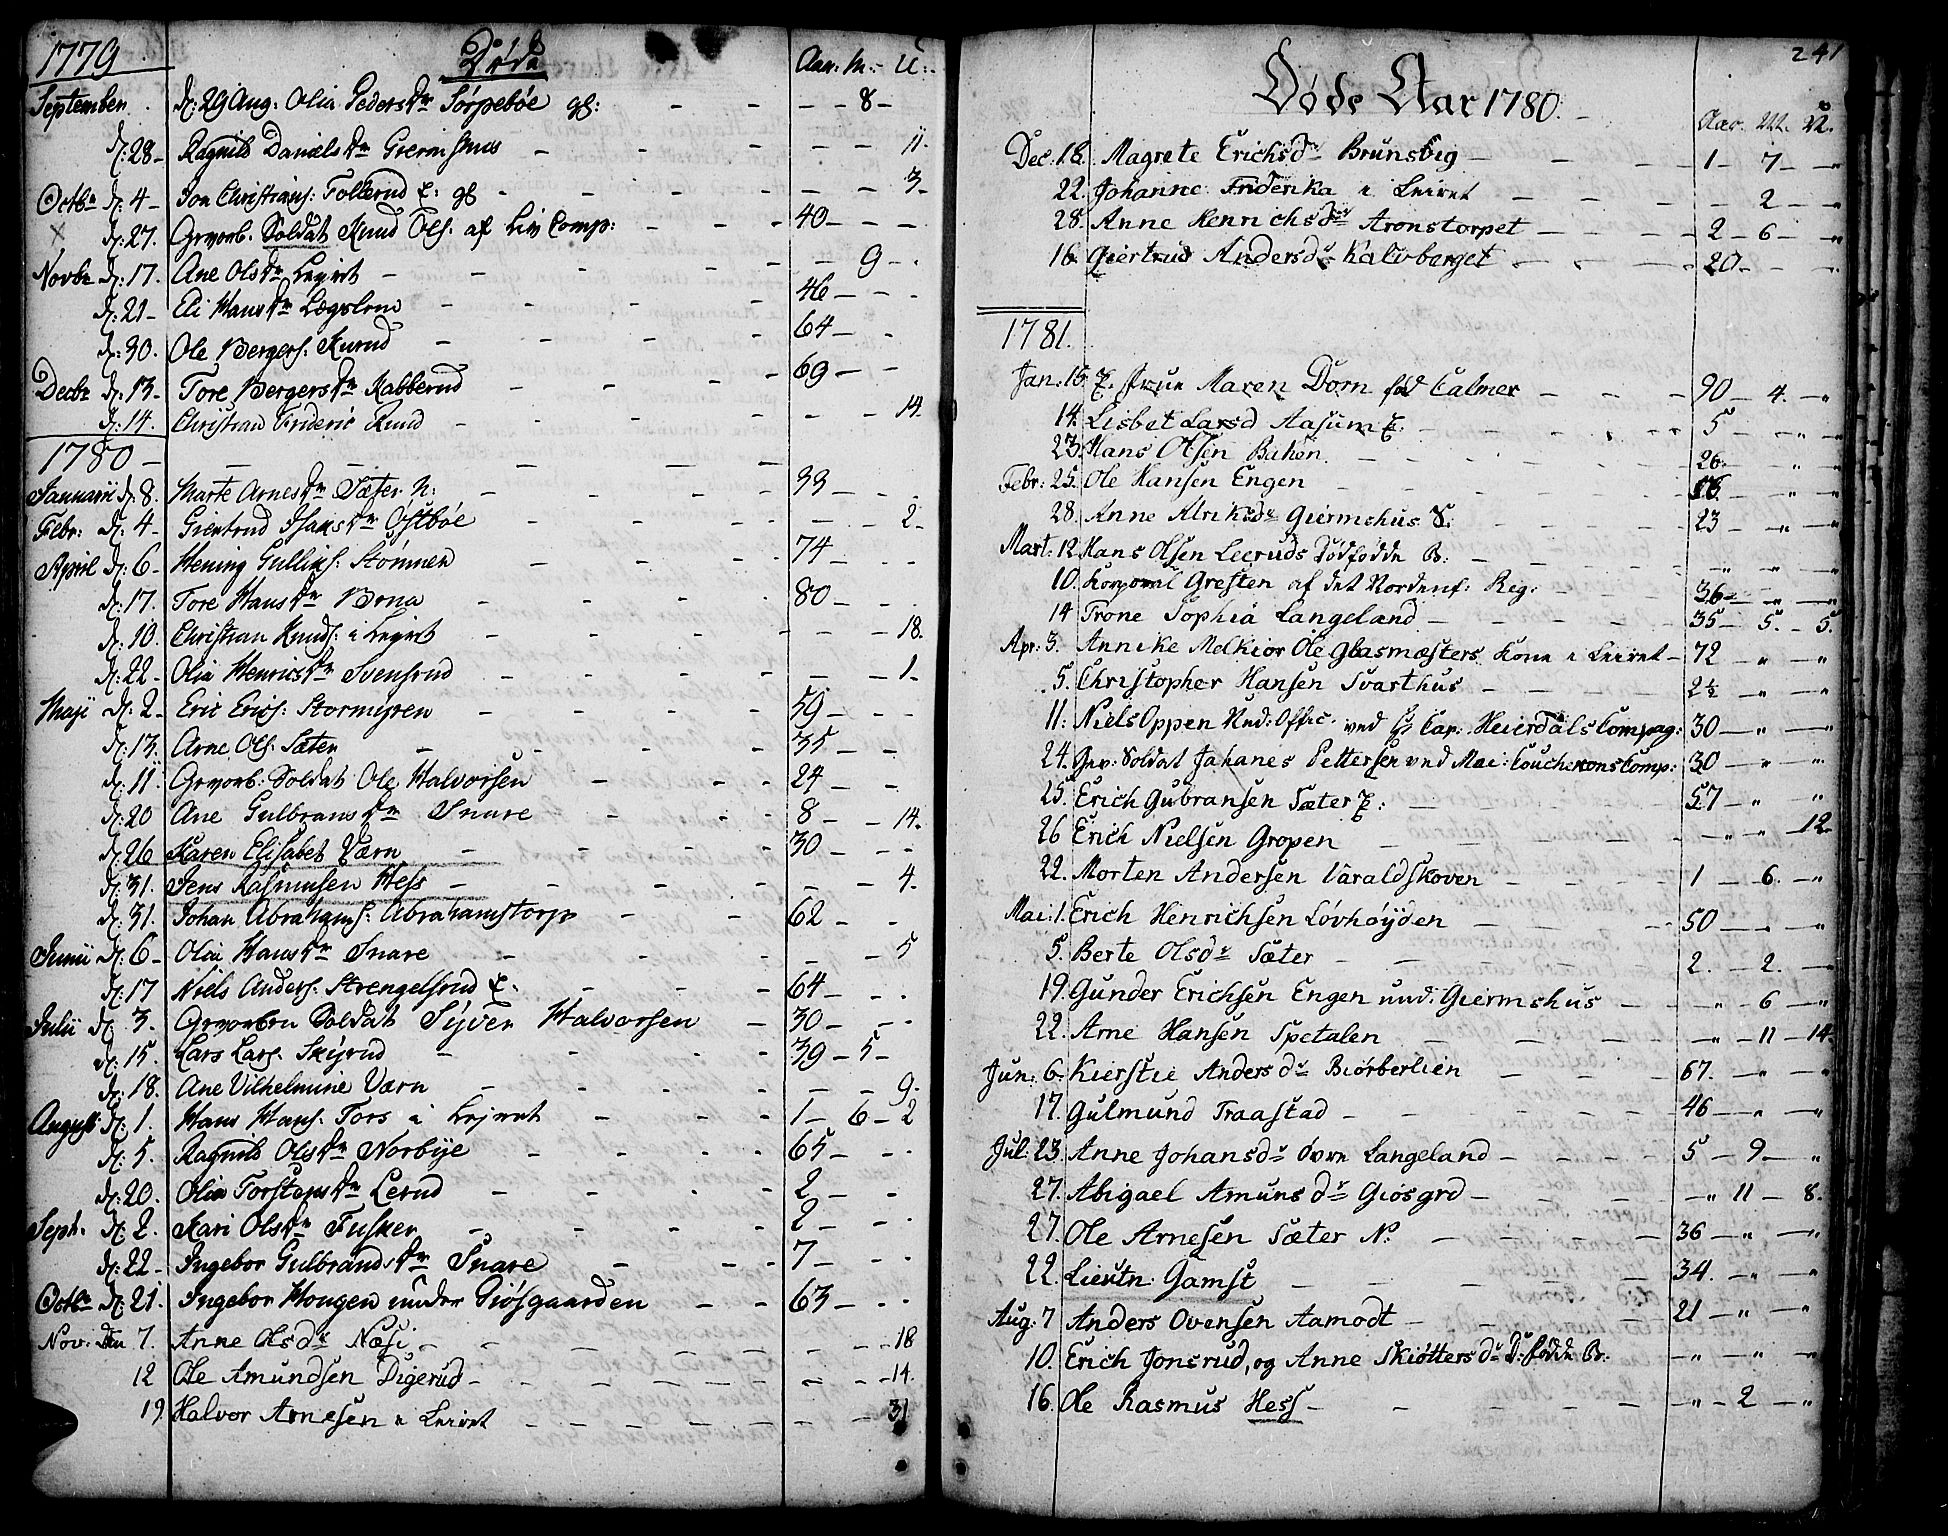 1779 Døde Aar: M: U:
September d: 29 Aug: Olia Pedersdr Sørpebøe gl: - - 8 -
d: 28 - Ragnild Danielsdr Giermshus - - - 11.
Octbr d: 4 - Jon Christians: Tollerud gl - - - 3 -
d: 27. Gevorb. Soldat Knud Ols. af Liv Comp: - 40 - - -
Novbr d: 17. Ane Olsdr Lejret - - 9 - .
d: 21 - Eli Hansdr - 46 - - -
d: 30. Ole Bergers: Kurud - 64 - - -
Decbr d: 13 - Tore Bergersdr Rabberud - 69 - -
d: 14. Christian Frideric Knud - - - 14.
1780 -
Januarii d: 8. Marte Arnesdr Sæter N: - 33 - - .
Febr: d: 4 - Giertrud Hansdr Ostbøe - - - 2 -
April d: 6 - Hening Gulliks: Stømmen - 74 - . .
d: 17. Tore Hansdr Berna - 80 - . .
d: 10. Christian Knuds: i Lejret - - - 18.
d: 22 - Olia Henricsdr Svensrud - - - 1 -
Maji d: 2 - Eric Erics: Stormigren - 59 - - -
d: 13. Arne Ols: Sæter - 35 - -
d: 11. Gevorb: Soldat Ole Halvorsen - 24 - -
d: 20 Ane Gulbransdr Snare - 8 - - 14.
d: 26 Karen Elisabet Værn - 30 - - -
d: 31. Jens Rasmusen Hess - - - 4.
d: 31. Johan Abrahams: Abrahamstorp - 62 - -
Junii d: 6 - Olia Hansdr Snare - - - 5
d: 17 Niels Anders: Strengelsrud - 64 - - .
Julii d: 3. Gevorben Soldat Syver Halvorsen - 30 - - -
d: 15. Lars Lars: Skyrud - 39 - 5 -
d: 18. Ane Vilhelmine Værn - - - 9.
August d: 1. Hans Hans: Tors i Lejret - 1 - 6 - 2
d: 5. Ragnild Olsdr Norbye - 65 - - .
d: 20. Olia Torstensdr Lerud - 2 - -
Septb. d: 2. Kari Olsdr Fusker - 2 - - .
d: 22 - Ingebor Gulbrandsdr Snare - 7 - - .
Octbr d: 21. Ingebor Hougen under Giøsgaarden - 63 - . .
Nov: den 7. Anne Olsdr Næsi - - - 18
12 Ole Amundsen Digerud - - - 14.
19. Halvor Arnesen i Leiret - - - 31
241
Døde Aar 1780.
Aar. M. U.
Dec. 18. Magrete Erichsdr Brunsbig - 1 - 7 - "
22. Johanne Friderika i Leiret - - 2 - "
28. Anne Henrichsdr Aronstorpet - 2 - 6 - "
16. Giertrud Andersdr Kalvberget - 20 - - "
1781.
Jan: 15. Frue Maren Dorn fød Calmer - 90 - 4. - "
14. Lisbet Larsd Aasum - 5 - - "
23. Hans Olsen Baken - 26. " "
Febr: 25. Ole Hansen Engen - 18. - " "
28. Anne Alriksdr Giermshus S: - 23 - " - "
Mart: 12. Hans Olsen Leeruds dødfødde B: - " - " - "
10. Korporal Gresten af det Nordenf: Reg: - 36 - " - "
14 Trone Sophia Langeland - 35 - 5. - 5.
Apr: 3. Annike Melkior Ole Glasmæsters Kone i Leiret - 72 - " - "
5. Christopher Hansen Svarthus - 2½ - " - "
11: Niels Oppen Und: Offic. ved Cap: Heierdals Compag: 30 - " - "
24. Gev: Soldat Johanes Pettersen ved Mai: Coucherons Comp: 30 - " "
25. Erich Gubransen Sæter: - 57 - " "
26 Erich Nielsen Gropen - " " 12.
22. Morten Andersen Varaldskoven - 1 - 6. - "
Mai: 1. Erich Henrichsen Løvhøyden - 50 - . - "
5. Berte Olsdr Sæter - 2. - 2. - "
19. Gunder Erichsen Engen und: Giermshus - " - 6 - "
22. Arne Hansen Spetalen - " - 11 - 14.
Jun: 6. Kierstie Andersdr Biørberlien - 67. - " - "
17. Gulmund Traastad - 46 - " - "
Jul: 23. Anne Johansdr Øvre Langeland - 5 - 9 - "
27. Abigael Amunsdr Giøsgrd - " 11 - 8.
27. Ole Arnesen Sæter N: - 36 - " - "
22. Lieutn: Gamst - 34. - " - "
Aug: 7 Anders Ovensen Aamodt - 21 - " - "
10. Erich Jonsrud, og Anne Skiøttersdr D: fødde B: - " - " "
16. Ole Rasmus Hess - " - 2 - "